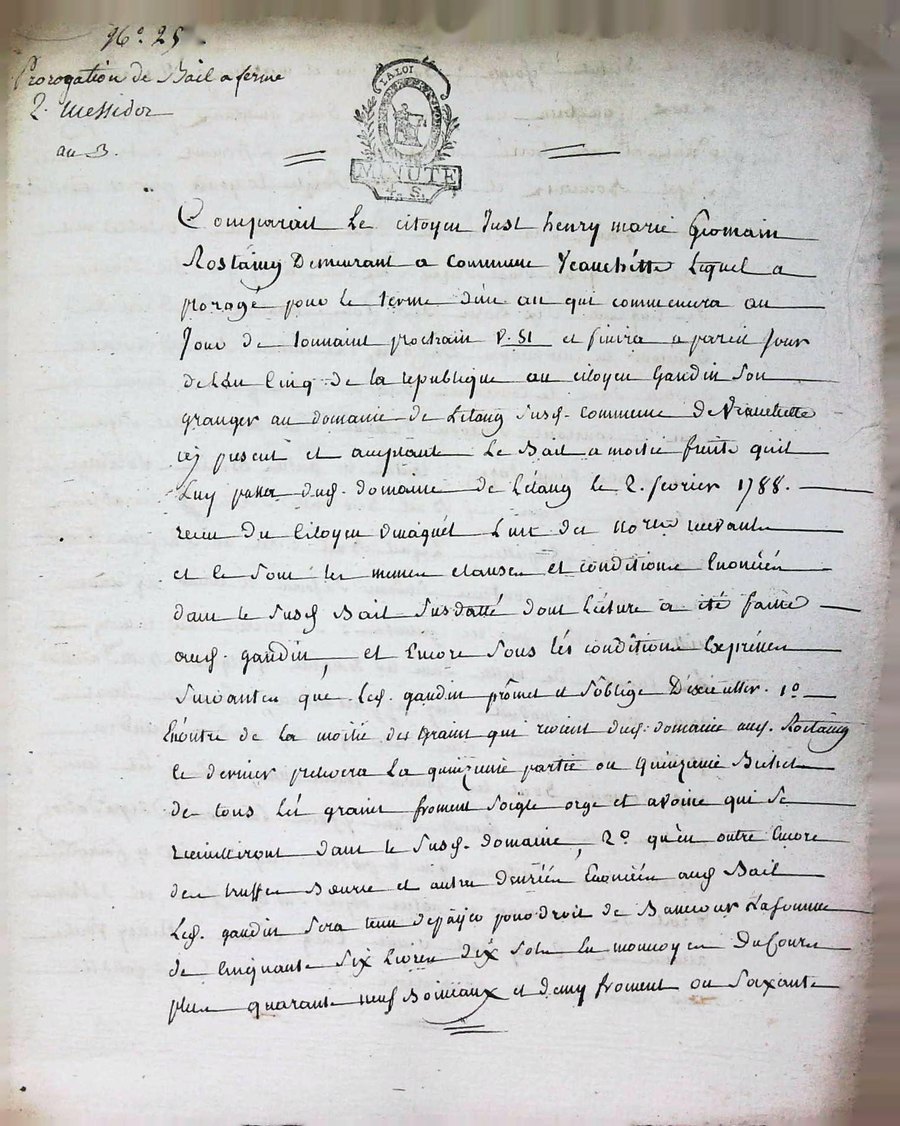 N°. 25.
Prorogation de Bail a ferme
2. Messidor
an 3.
LA LOI
MINUTE
4. S.
Comparait Le citoyen Just henry marie Germain
Rostaing Demeurant a Commune Veauchette Lequel a
prorogé pour le terme d'un an qui commencera au
Jour de toussaint prochain V. St. et finira a pareil Jour
de L'an Cinq de la republique au citoyen Gaudin Son
granger au domaine de Létang Susd. Commune de Veauchette
icy present et acceptant Le Bail a moitié fruits quil
Luy passa dud. domaine de Létang le 2. fevrier 1788.
recu du Citoyen L'un des Nores recevants
et ce Sous les memes clauses et conditions Enoncées
dans le Susd Bail Susdatté dont Lecture a été faitte
aud. gaudin, et Encore Sous les conditions Exprimées
Suivantes que Led. gaudin promet et S'oblige D'executter. 1o
Enoutre de La moitié des Grains qui revient dud. domaine aud. Rostaing
ce dernier prelevera La quinzieme partie ou quinzieme Bichet
de tous Les grains froment Seigle orge et avoine qui Se
recueilliront dans le Susd. domaine, 2o qu'en outre Encore
des truffes Beurre et autres Denrées Enoncées aud Bail
Led. gaudin Sera tenu de payer pour droit de Lasomme
de Cinquante Six Livres dix Sols En monnoye du Cours
plus quarante neuf Boisseaux et demy froment ou Soixante